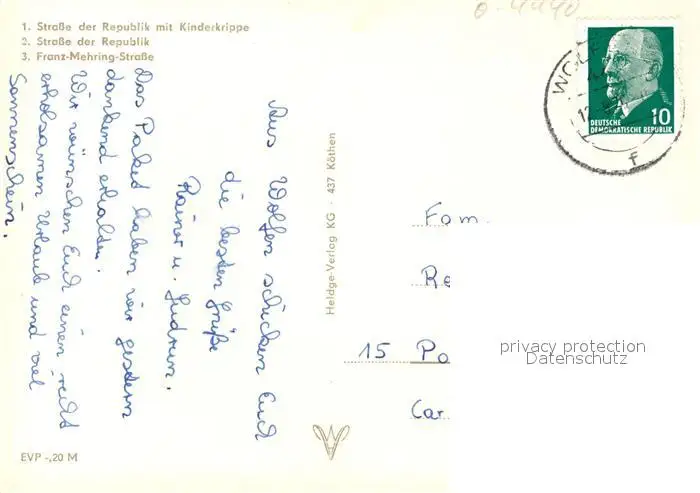 0-4440
1. Straße der Republik mit Kinderkrippe
2. Straße der Republik
3. Franz-Mehring-Straße
Aus Wolfen schicken Euch
die besten Grüße
Rainer u. Gudrun.
Das Paket haben wir gestern
dankend erhalten.
Wir wünschen Euch einen recht
erholsamen Urlaub und viel
Sonnenschein.
Heldge-Verlag KG · 437 Köthen
WOLF
f
10
DEUTSCHE
DEMOKRATISCHE REPUBLIK
Fam.
Re
15 Po
Car
privacy protection
Datenschutz
EVP -,20 M